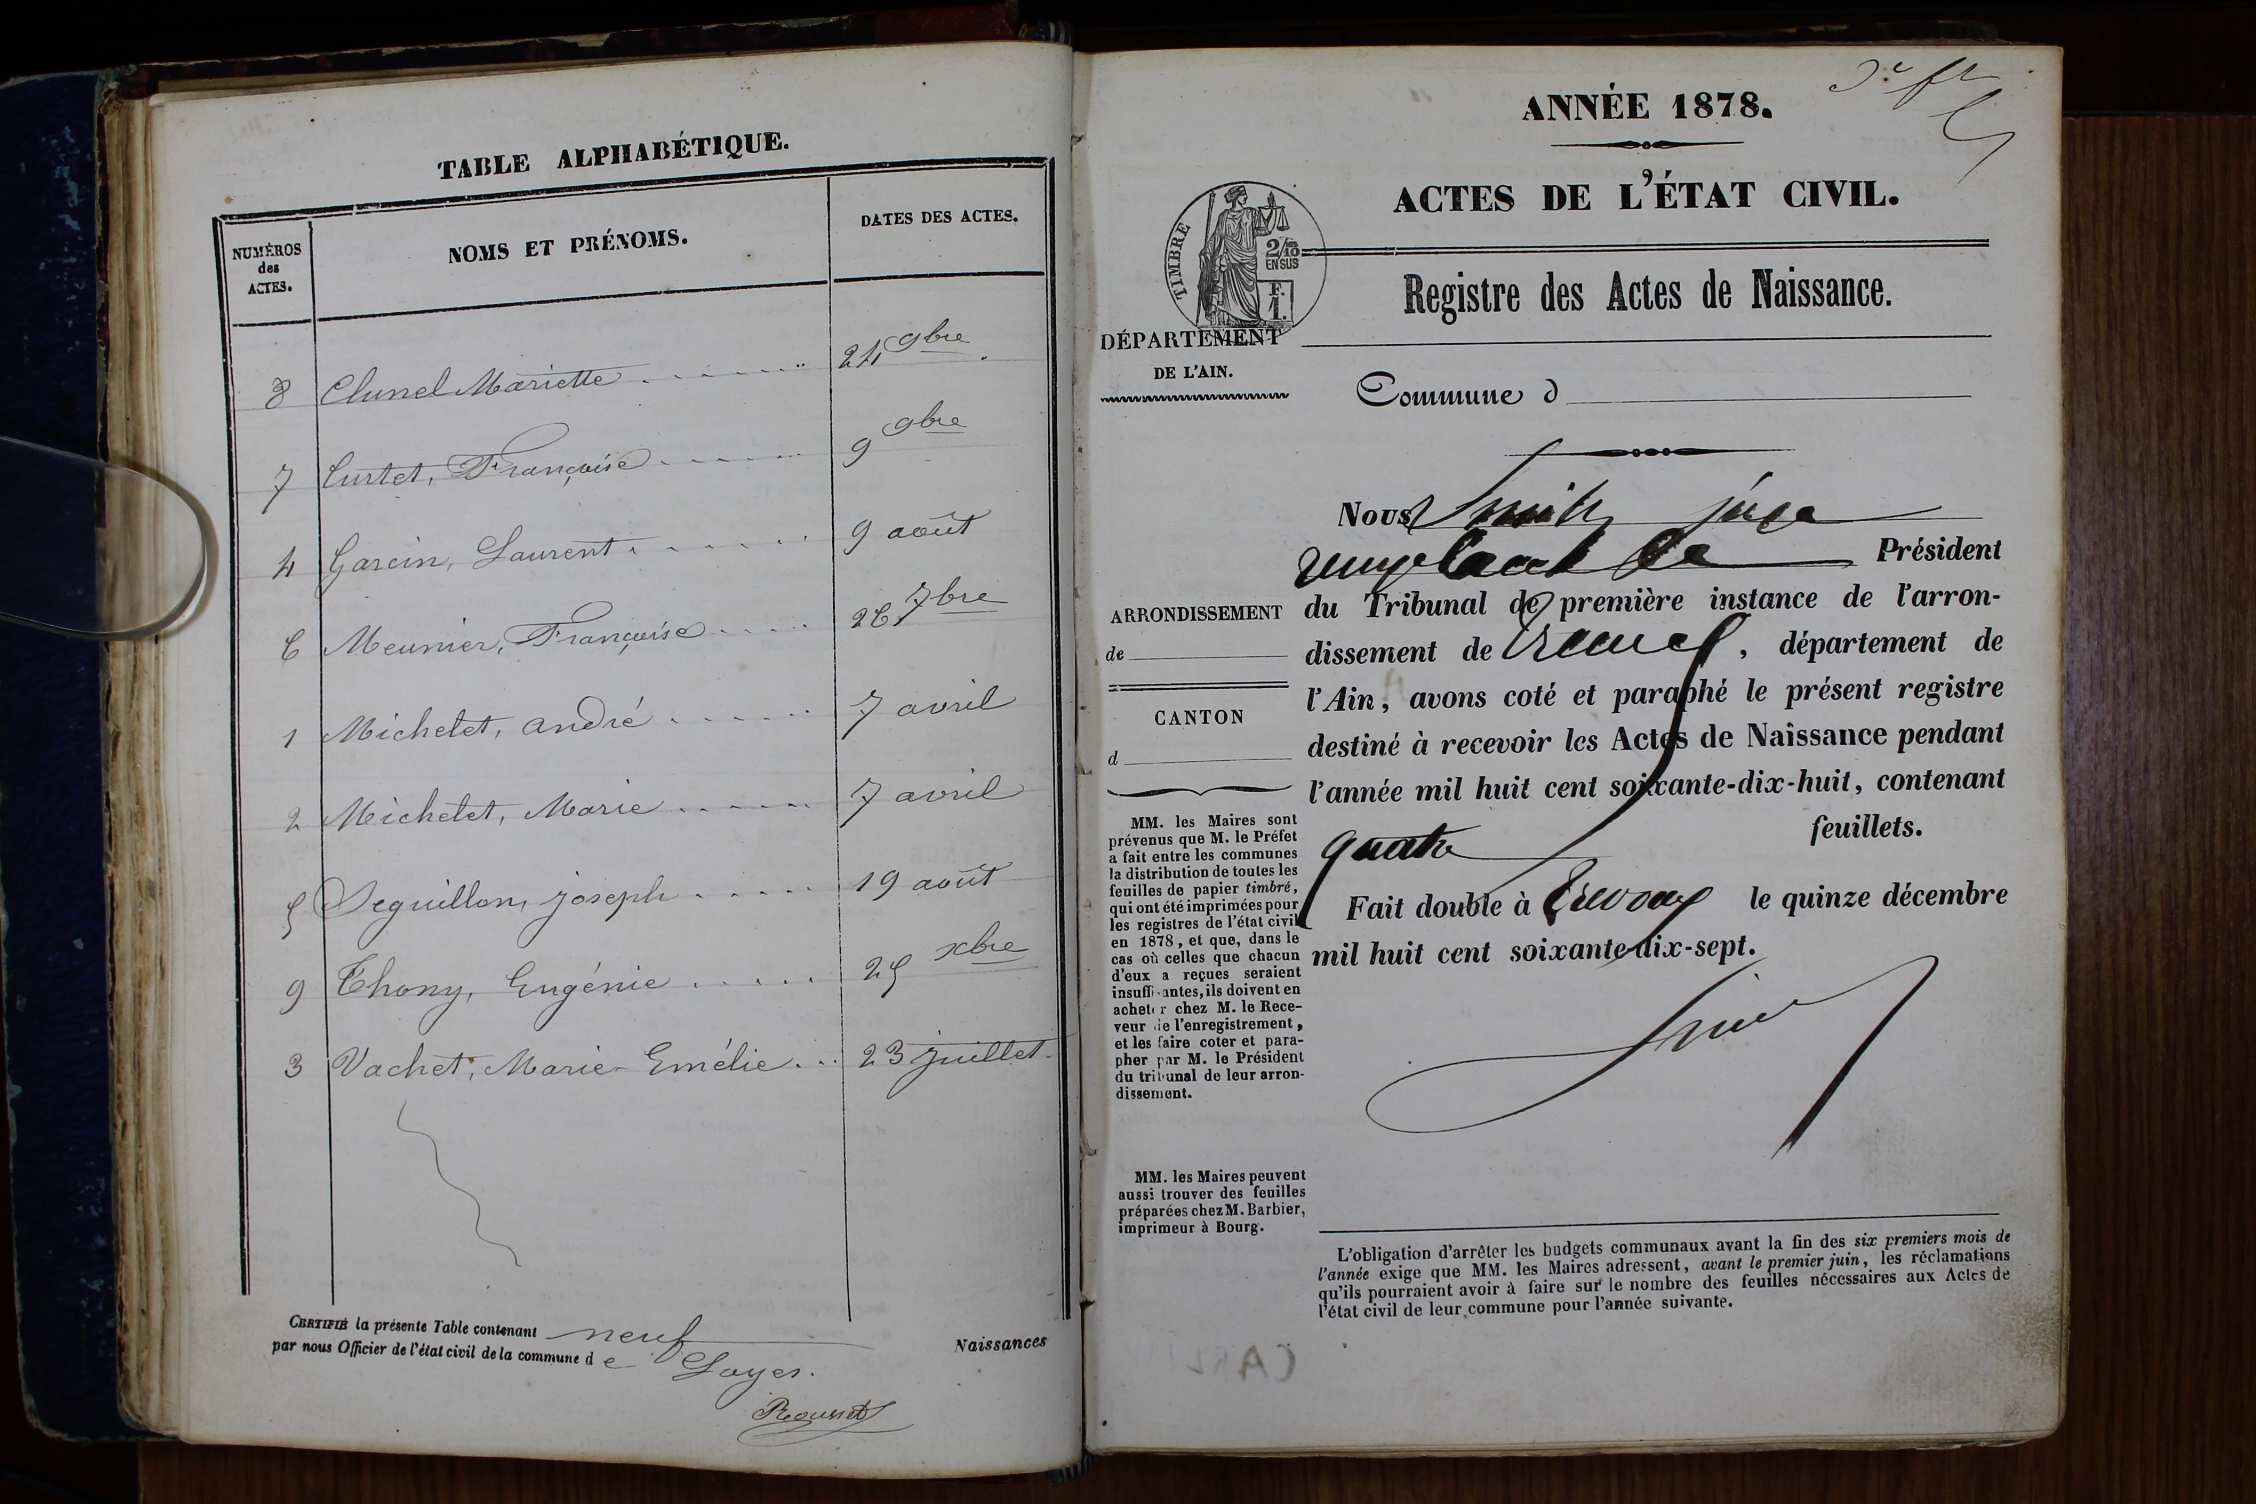 TABLE ALPHABÉTIQUE.
NUMÉROS
des
ACTES.
NOMS ET PRÉNOMS.
DATES DES ACTES.
8 Clunel Mariette 24 9bre
7 Curtet, Françoise 9 9bre
4 Garcin, Laurent 9 août
6 Meunier, Françoise 26 7bre
1 Michelet, andré 7 avril
2 Michelet, Marie 7 avril
5 Seguillon, joseph 19 août
9 Thony, Eugénie 25 xbre
3 Vachet, Marie-Emélie 23 juillet
CERTIFIÉ la présente Table contenant neuf Naissances
par nous Officier de l'état civil de la commune de Loyes.
Rousset
ANNÉE 1878.
ACTES DE L'ÉTAT CIVIL.
TIMBRE
2/10
EN SUS
F.
1.
Registre des Actes de Naissance.
DÉPARTEMENT
DE L'AIN.
Commune d
Nous juge
remplaçant le Président
du Tribunal de première instance de l'arron-
dissement de Trévoux, département de
l'Ain, avons coté et paraphé le présent registre
destiné à recevoir les Actes de Naissance pendant
l'année mil huit cent soixante-dix-huit, contenant
quatre feuillets.
Fait double à Trévoux le quinze décembre
mil huit cent soixante-dix-sept.
ARRONDISSEMENT
de
CANTON
d
MM. les Maires sont
prévenus que M. le Préfet
a fait entre les communes
la distribution de toutes les
feuilles de papier timbré,
qui ont été imprimées pour
les registres de l'état civil
en 1878, et que, dans le
cas où celles que chacun
d'eux a reçues seraient
insuffisantes, ils doivent en
acheter chez M. le Rece-
veur de l'enregistrement,
et les faire coter et para-
pher par M. le Président
du tribunal de leur arron-
dissement.
MM. les Maires peuvent
aussi trouver des feuilles
préparées chez M. Barbier,
imprimeur à Bourg.
L'obligation d'arrêter les budgets communaux avant la fin des six premiers mois de
l'année exige que MM. les Maires adressent, avant le premier juin, les réclamations
qu'ils pourraient avoir à faire sur le nombre des feuilles nécessaires aux Actes de
l'état civil de leur commune pour l'année suivante.